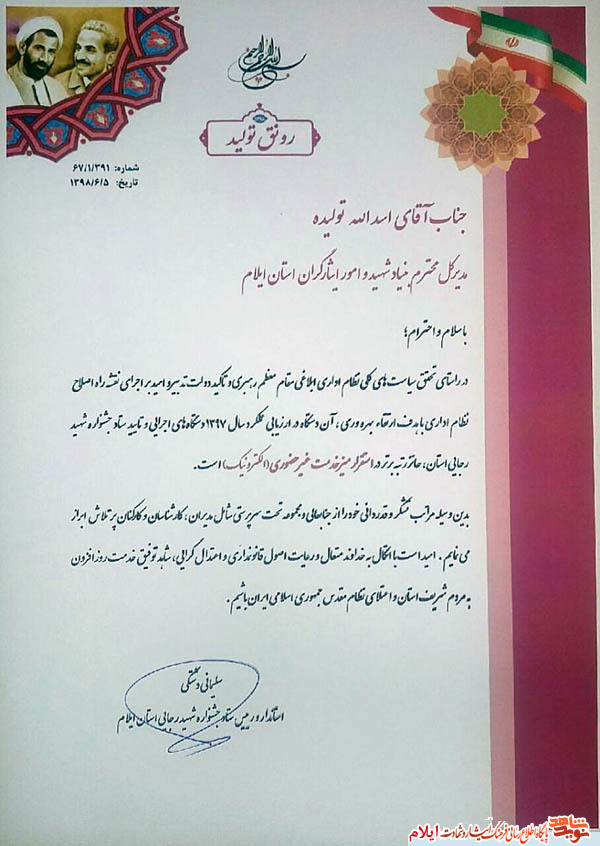 بسم الله الرحمن الرحیم
۱۳۹۸
رونق تولید
شماره: ۶۷/۱/۳۹۱
تاریخ: ۱۳۹۸/۶/۵
جناب آقای اسد الله تولیده
مدیرکل محترم بنیاد شهید و امور ایثارگران استان ایلام
با سلام و احترام؛
در راستای تحقق سیاست های کلی نظام اداری ابلاغی مقام معظم رهبری و تاکید دولت تدبیر و امید بر اجرای نقشه راه اصلاح
نظام اداری با هدف ارتقاء بهره وری، آن دستگاه در ارزیابی عملکرد سال ۱۳۹۷ دستگاه های اجرایی و تایید ستاد جشنواره شهید
رجایی استان، حائز رتبه برتر در استقرار میز خدمت غیر حضوری (الکترونیک) است.
بدین وسیله مراتب تشکر و قدردانی خود را از جنابعالی و مجموعه تحت سرپرستی شامل مدیران، کارشناسان و کارکنان پر تلاش ابراز
می نمایم. امید است با اتکال به خداوند متعال و رعایت اصول قانونمداری و اعتدال گرایی، شاهد توفیق خدمت روزافزون
به مردم شریف استان و اعتلای نظام مقدس جمهوری اسلامی ایران باشیم.
سلیمانی دشتکی
استاندار و رییس ستاد جشنواره شهید رجایی استان ایلام
نوید شاهد پایگاه اطلاع رسانی فرهنگ ایثار و شهادت ایلام